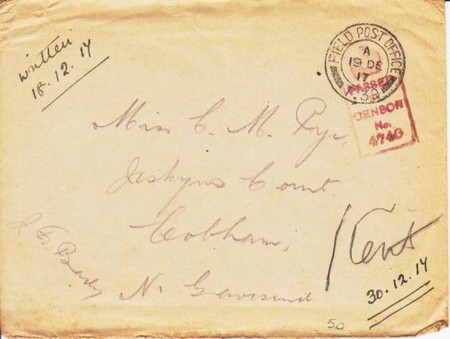 written
18.12.17
FIELD POST OFFICE
A
19 DE
17
PASSED
CENSOR
No.
4740
Miss C. M. Pye,
Jeskyns Court
Cobham,
Kent
N. Gravesend
30.12.17
50